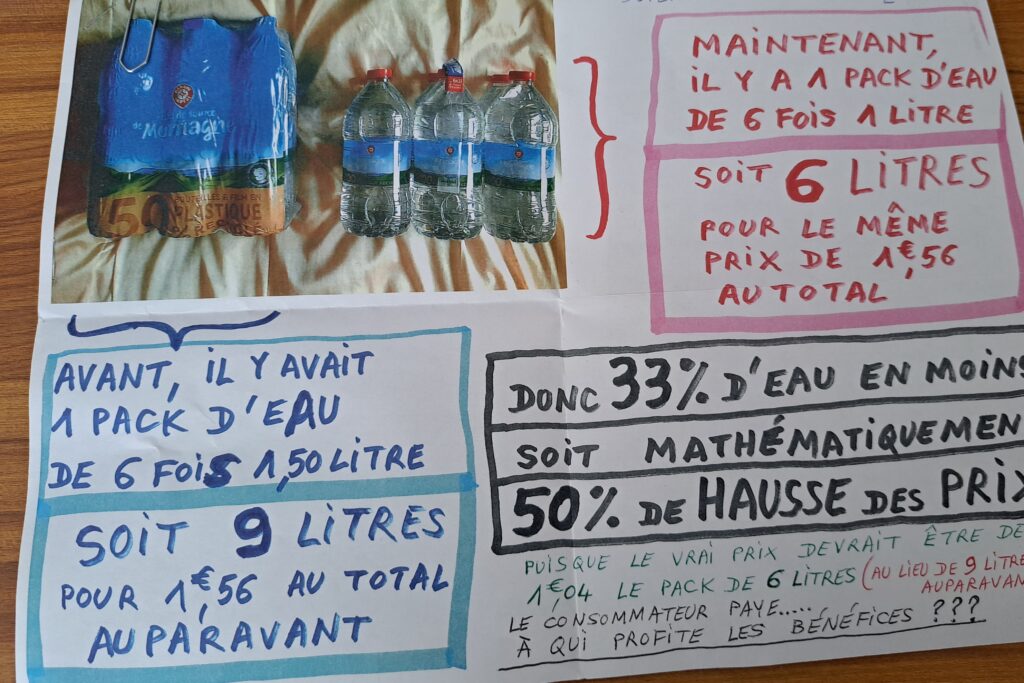 de source
de Montagne
50
BOUTEILLES & FILM EN
PLASTIQUE
MAINTENANT,
IL Y A 1 PACK D'EAU
DE 6 FOIS 1 LITRE
SOIT 6 LITRES
POUR LE MÊME
PRIX DE 1€,56
AU TOTAL
AVANT, IL Y AVAIT
1 PACK D'EAU
DE 6 FOIS 1,50 LITRE
SOIT 9 LITRES
POUR 1€,56 AU TOTAL
AUPARAVANT
DONC 33% D'EAU EN MOINS
SOIT MATHÉMATIQUEMEN
50% DE HAUSSE DES PRIX
PUISQUE LE VRAI PRIX DEVRAIT ÊTRE DE
1€,04 LE PACK DE 6 LITRES (AU LIEU DE 9 LITRE
AUPARAVAN
LE CONSOMMATEUR PAYE.....
À QUI PROFITE LES BÉNÉFICES ???